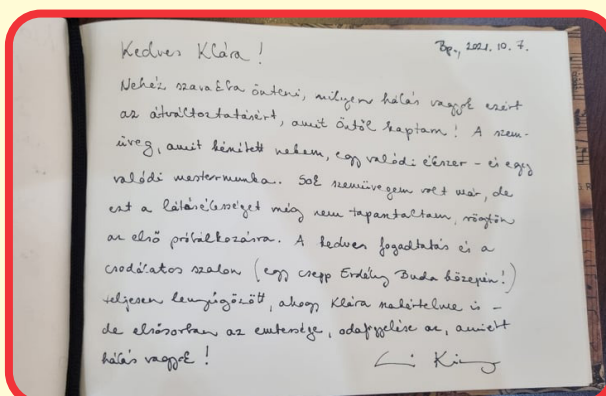 Kedves Klára!
Bp., 2021. 10. 7.
Nehéz szavakba önteni, milyen hálás vagyok ezért
az átváltoztatásért, amit Öntől kaptam! A szem-
üveg, amit készített nekem, egy valódi ékszer – és egy
valódi mestermunka. Sok szemüvegem volt már, de
ezt a látásélességet még nem tapasztaltam, rögtön
az első próbálkozásra. A kedves fogadtatás és a
csodálatos szalon (egy csepp Erdély Buda közepén!)
teljesen lenyűgözött, ahogy Klára szakértelme is –
de elsősorban az embersége, odafigyelése az, amiért
hálás vagyok!